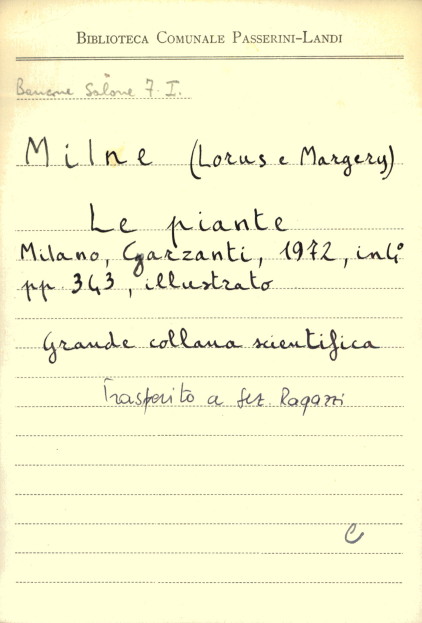 BIBLIOTECA COMUNALE PASSERINI-LANDI
Bancone Salone 7. I.
Milne (Lorus e Margery)
Le piante
Milano, Garzanti, 1972, in 4°
pp. 343, illustrato
Grande collana scientifica
Trasferito a Sez. Ragazzi
C